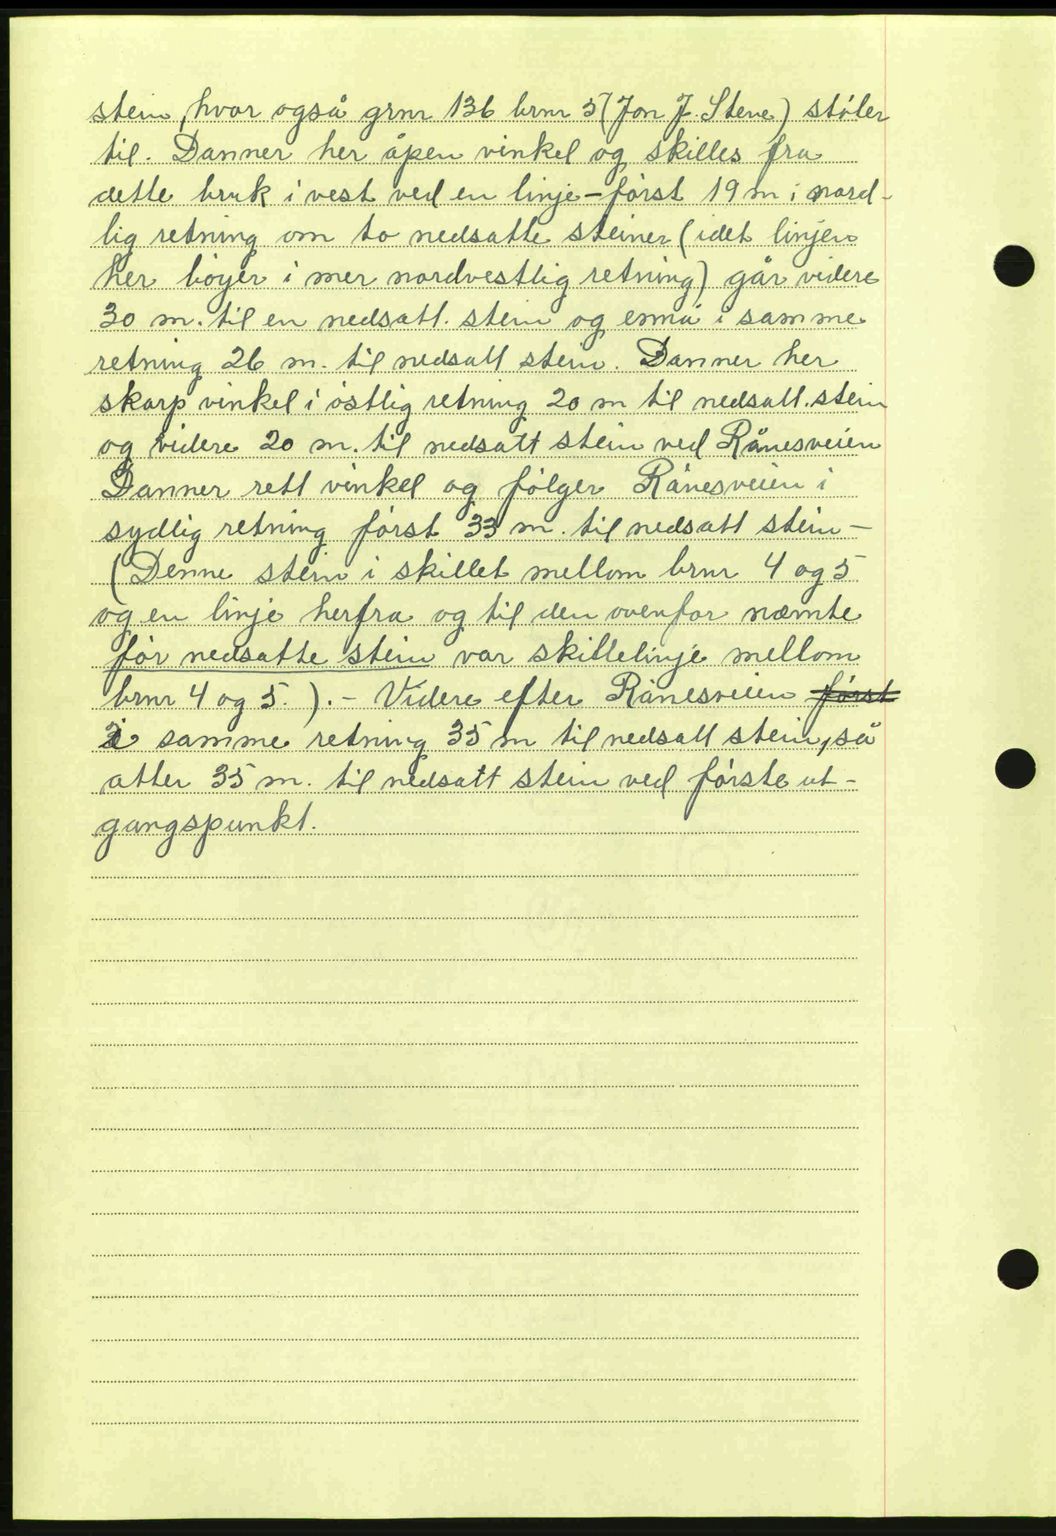 stein, hvor også grnr 136 brnr 5 (Jon J. Stene) støter
til. Danner her åpen vinkel og skilles fra
dette bruk i vest ved en linje - først 19 m i nord-
lig retning om to nedsatte steiner (idet linjen
her bøyer i mer nordvestlig retning) går videre
30 m. til en nedsatt. stein og ennå i samme
retning 26 m. til nedsatt stein. Danner her
skarp vinkel i østlig retning 20 m til nedsatt. stein
og videre 20 m. til nedsatt stein ved Rånesveien
Danner rett vinkel og følger Rånesveien i
sydlig retning først 33 m. til nedsatt stein -
(Denne stein i skillet mellom brnr 4 og 5
og en linje herfra og til den ovenfor næmte
før nedsatte stein var skillelinje mellom
brnr 4 og 5. ). - Videre efter Rånesveien først
i samme retning 35 m til nedsatt stein, så
atter 35 m. til nedsatt stein ved første ut-
gangspunkt.